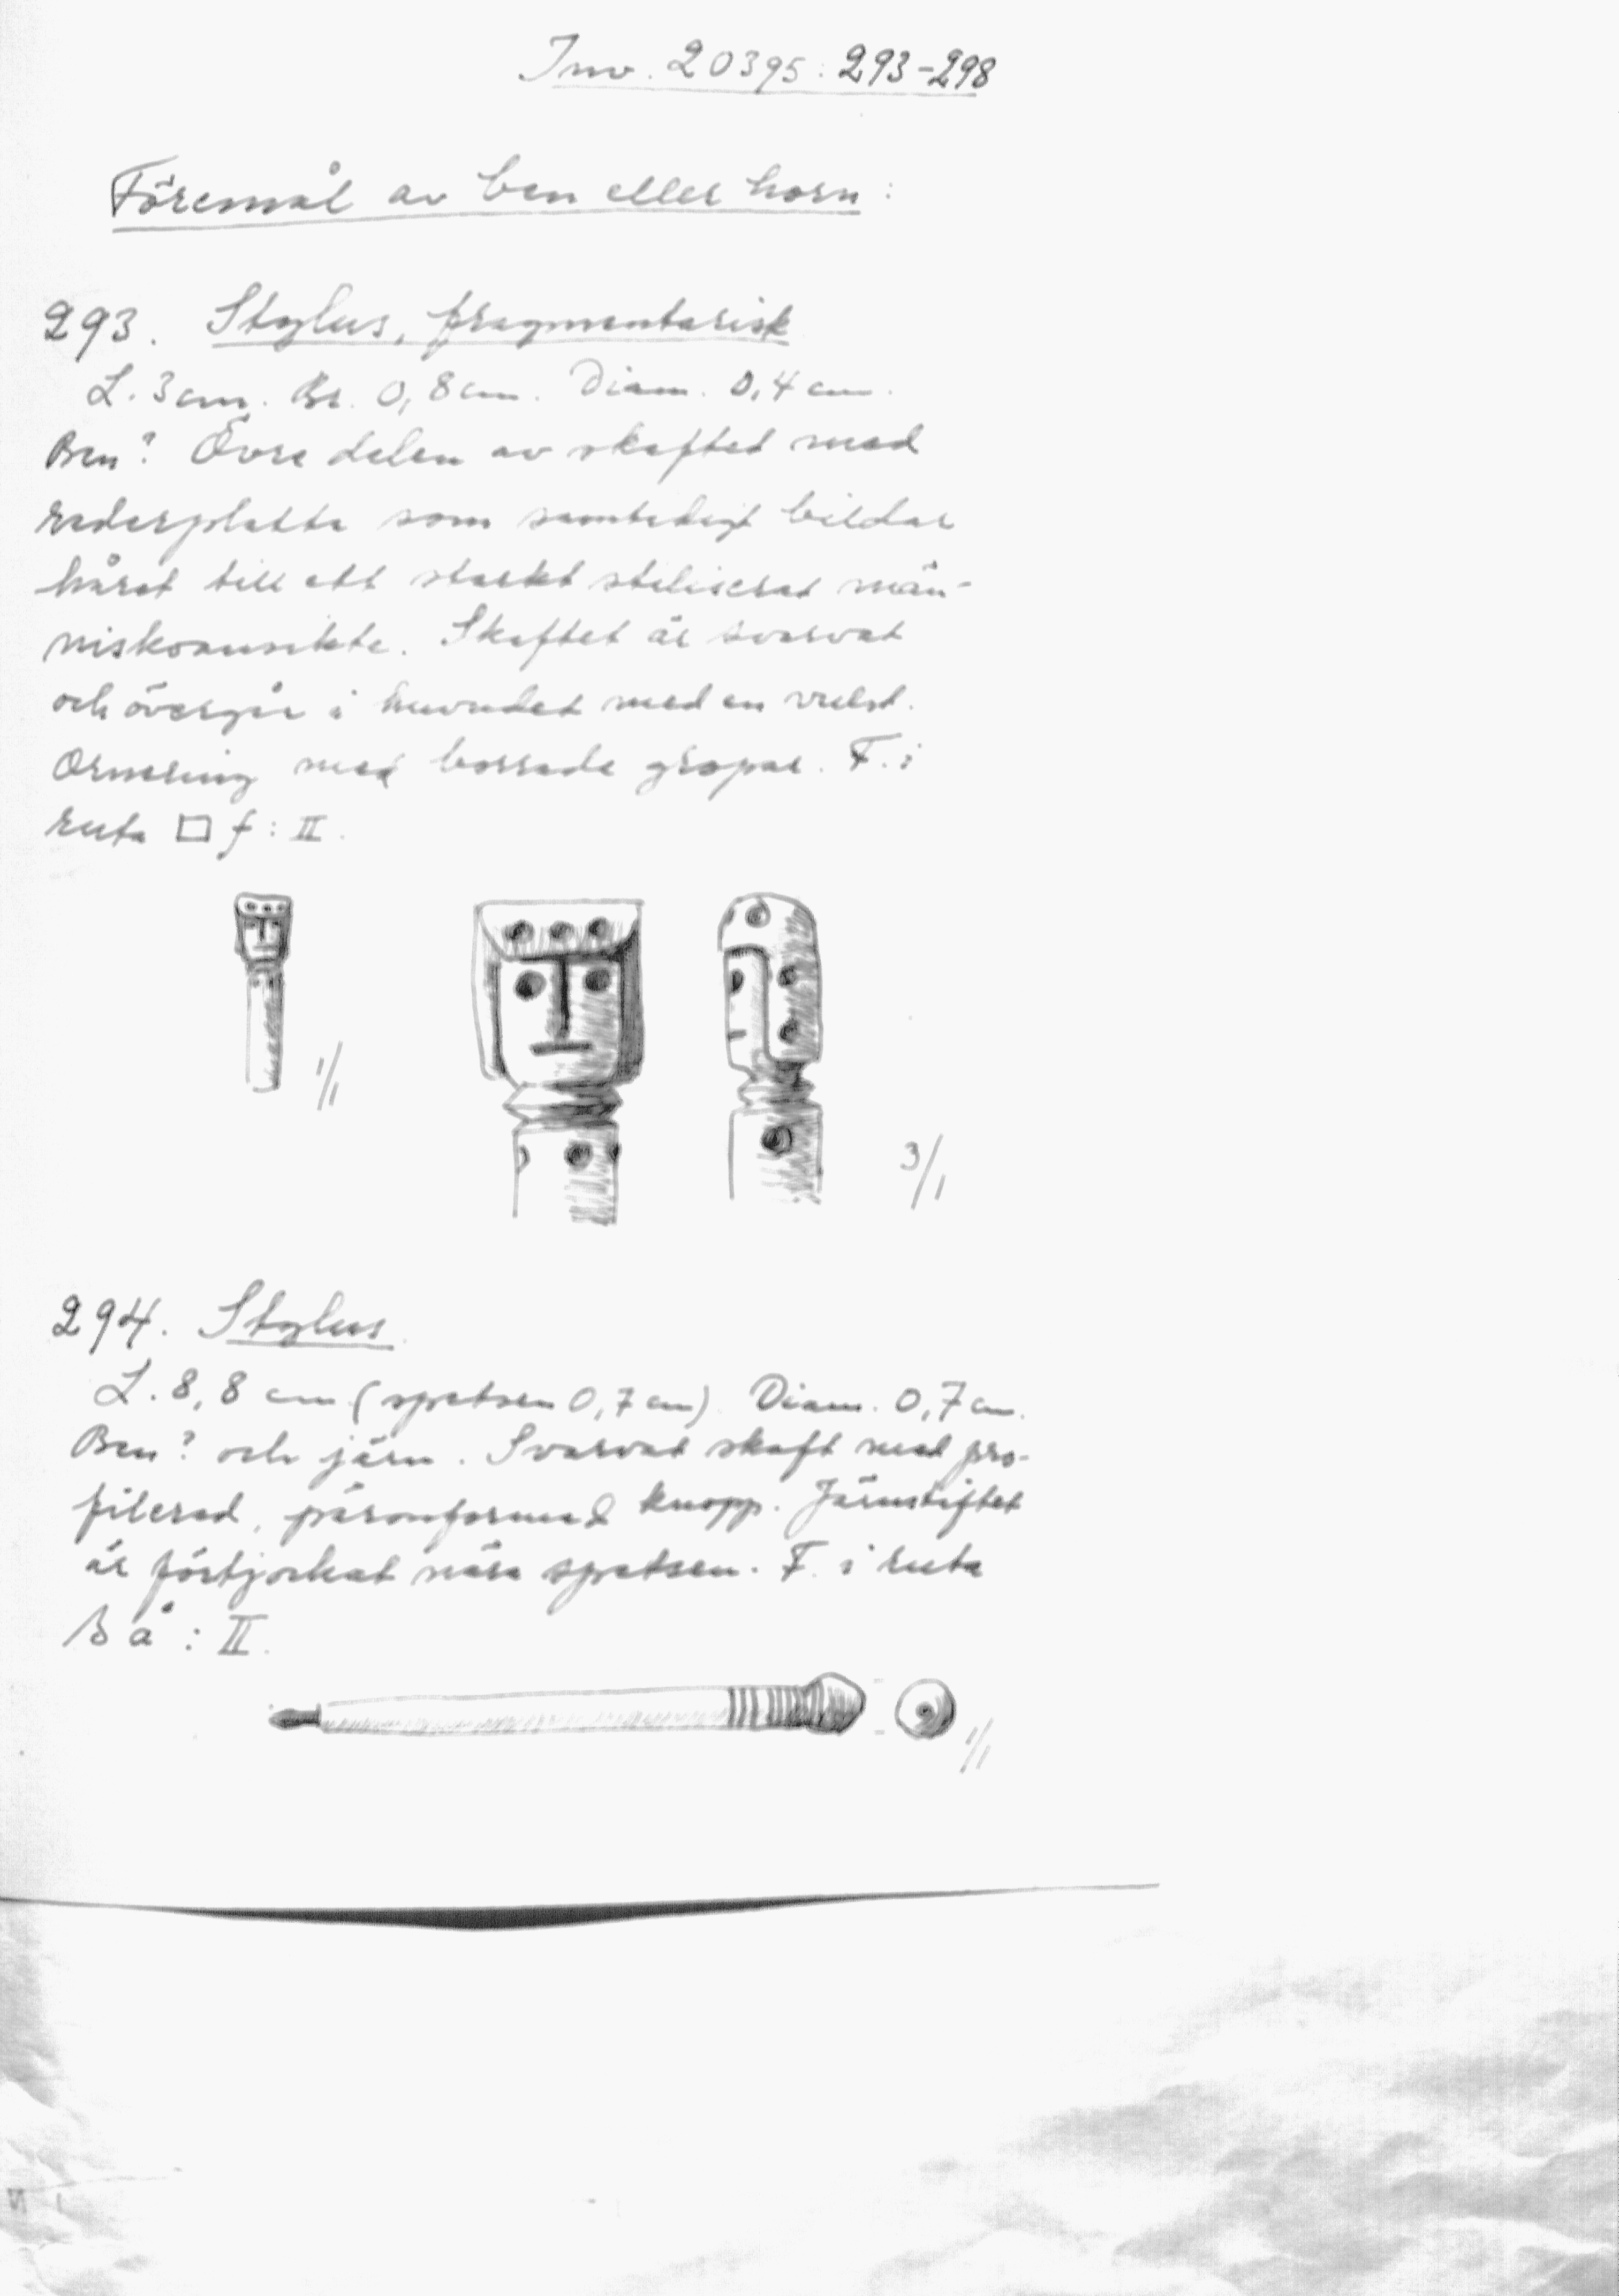 Inv. 20395: 293-298
Föremål av ben eller horn:
293. Stylus, fragmentarisk
L. 3 cm. Br. 0,8 cm. Diam. 0,4 cm.
Ben? Övre delen av skaftet med
raderplatta som samtidigt bildar
håret till ett starkt stiliserat män-
niskoansikte. Skaftet är svarvat
och övergår i huvudet med en vulst.
Ornering med borrade gropar. F. i
ruta □ f: II.
1/1
3/1
294. Stylus
L. 8,8 cm (spetsen 0,7 cm). Diam. 0,7 cm.
Ben? och järn. Svarvat skaft med pro-
filerad, päronformad knopp. Järnstiftet
är förtjockat nära spetsen. F. i ruta
B å: II.
1/1